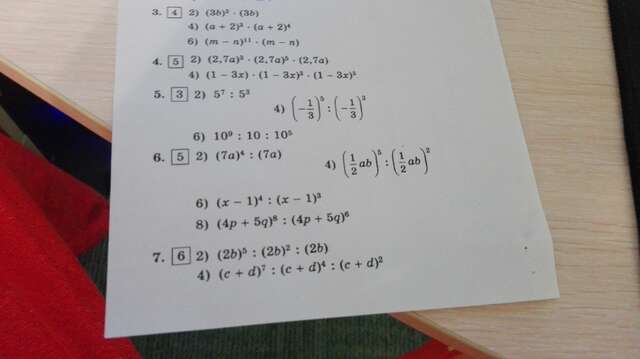 3. 4 2) (3b)² · (3b)
4) (a + 2)³ · (a + 2)⁴
6) (m − n)¹¹ · (m − n)
4. 5 2) (2,7a)³ · (2,7a)⁵ · (2,7a)
4) (1 − 3x) · (1 − 3x)³ · (1 − 3x)³
5. 3 2) 5⁷ : 5³ 4) (−1/3)⁵ : (−1/3)³
6) 10⁹ : 10 : 10⁵
6. 5 2) (7a)⁴ : (7a) 4) (1/2 ab)⁵ : (1/2 ab)²
6) (x − 1)⁴ : (x − 1)³
8) (4p + 5q)⁸ : (4p + 5q)⁶
7. 6 2) (2b)⁵ : (2b)² : (2b)
4) (c + d)⁷ : (c + d)⁴ : (c + d)²